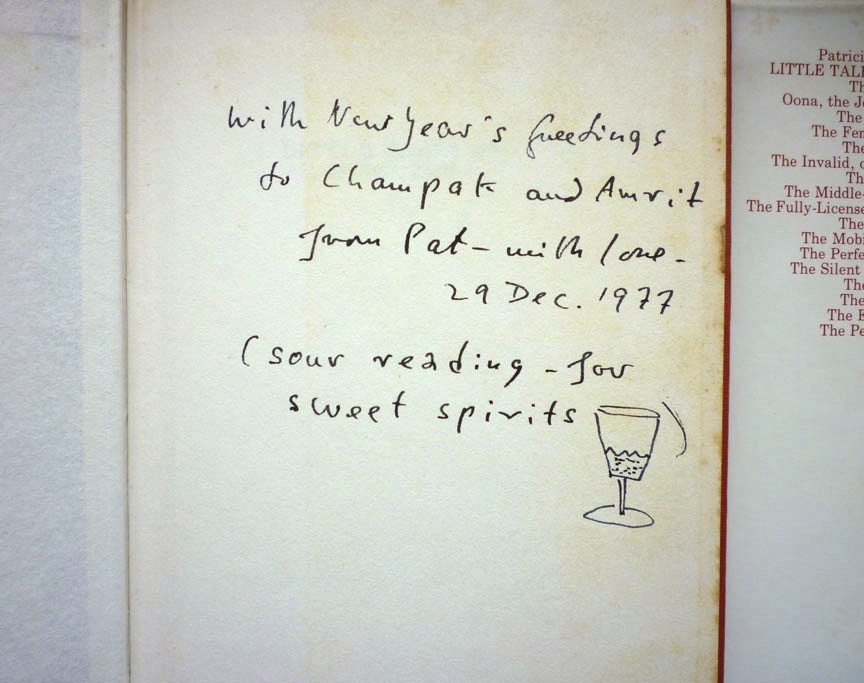 With New Year's Greetings
to Champak and Amrit
from Pat - with love -
29 Dec. 1977
(sour reading - for
sweet spirits )
Patrici
LITTLE TAL
Th
Oona, the J
The
The Fer
The
The Invalid, o
Th
The Middle-
The Fully-License
The
The Mobi
The Perfe
The Silent
The
The
The E
The Pe